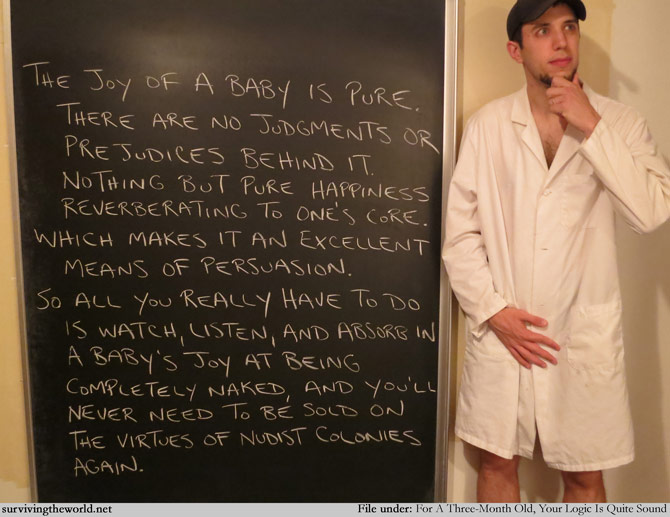 THE JOY OF A BABY IS PURE.
THERE ARE NO JUDGMENTS OR
PREJUDICES BEHIND IT.
NOTHING BUT PURE HAPPINESS
REVERBERATING TO ONE'S CORE.
WHICH MAKES IT AN EXCELLENT
MEANS OF PERSUASION.
SO ALL YOU REALLY HAVE TO DO
IS WATCH, LISTEN, AND ABSORB IN
A BABY'S JOY AT BEING
COMPLETELY NAKED, AND YOU'LL
NEVER NEED TO BE SOLD ON
THE VIRTUES OF NUDIST COLONIES
AGAIN.
survivingtheworld.net File under: For A Three-Month Old, Your Logic Is Quite Sound